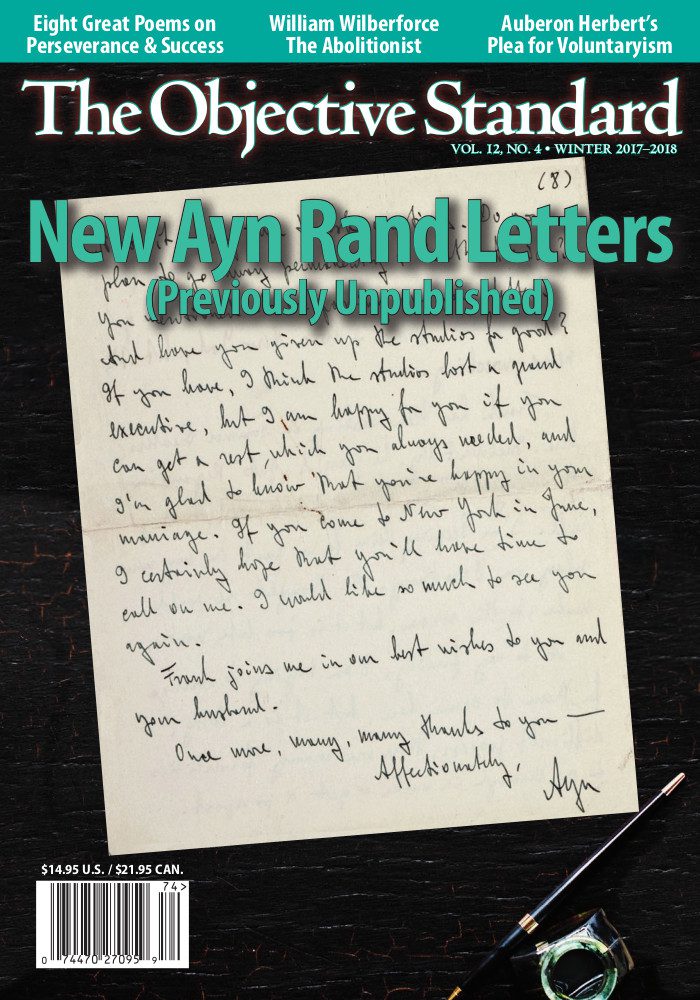 Eight Great Poems on
Perseverance & Success
William Wilberforce
The Abolitionist
Auberon Herbert's
Plea for Voluntaryism
The Objective Standard
VOL. 12, NO. 4 • WINTER 2017–2018
(8)
New Ayn Rand Letters
plan to go away permanently
(Previously Unpublished)
you
And have you given up the studios for good?
If you have, I think the studios lost a grand
executive, but I am happy for you if you
can get a rest, which you always needed, and
I'm glad to know that you're happy in your
marriage. If you come to New York in June,
I certainly hope that you'll have time to
call on me. I would like so much to see you
again.
Frank joins me in our best wishes to you and
your husband.
Once more, many, many thanks to you —
Affectionately,
Ayn
$14.95 U.S. / $21.95 CAN.
74>
0 74470 27095 9